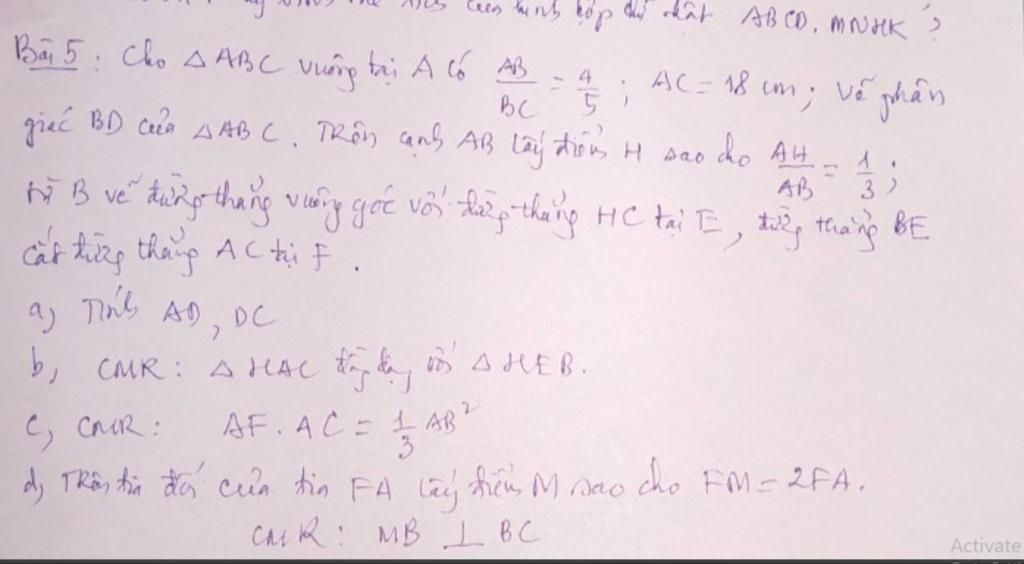 của hình hộp chữ nhật ABCD.MNHK ?
Bài 5 : Cho △ABC vuông tại A có AB/BC = 4/5 ; AC = 18 cm ; Vẽ phân
giác BD của △ABC. Trên cạnh AB lấy điểm H sao cho AH/AB = 1/3 ;
từ B vẽ đường thẳng vuông góc với đường thẳng HC tại E, đường thẳng BE
cắt đường thẳng AC tại F.
a) Tính AD, DC
b) CMR : △HAC đồng dạng với △HEB.
c) CMR : AF.AC = 1/3 AB²
d) Trên tia đối của tia FA lấy điểm M sao cho FM = 2FA.
CMR : MB ⊥ BC
Activate